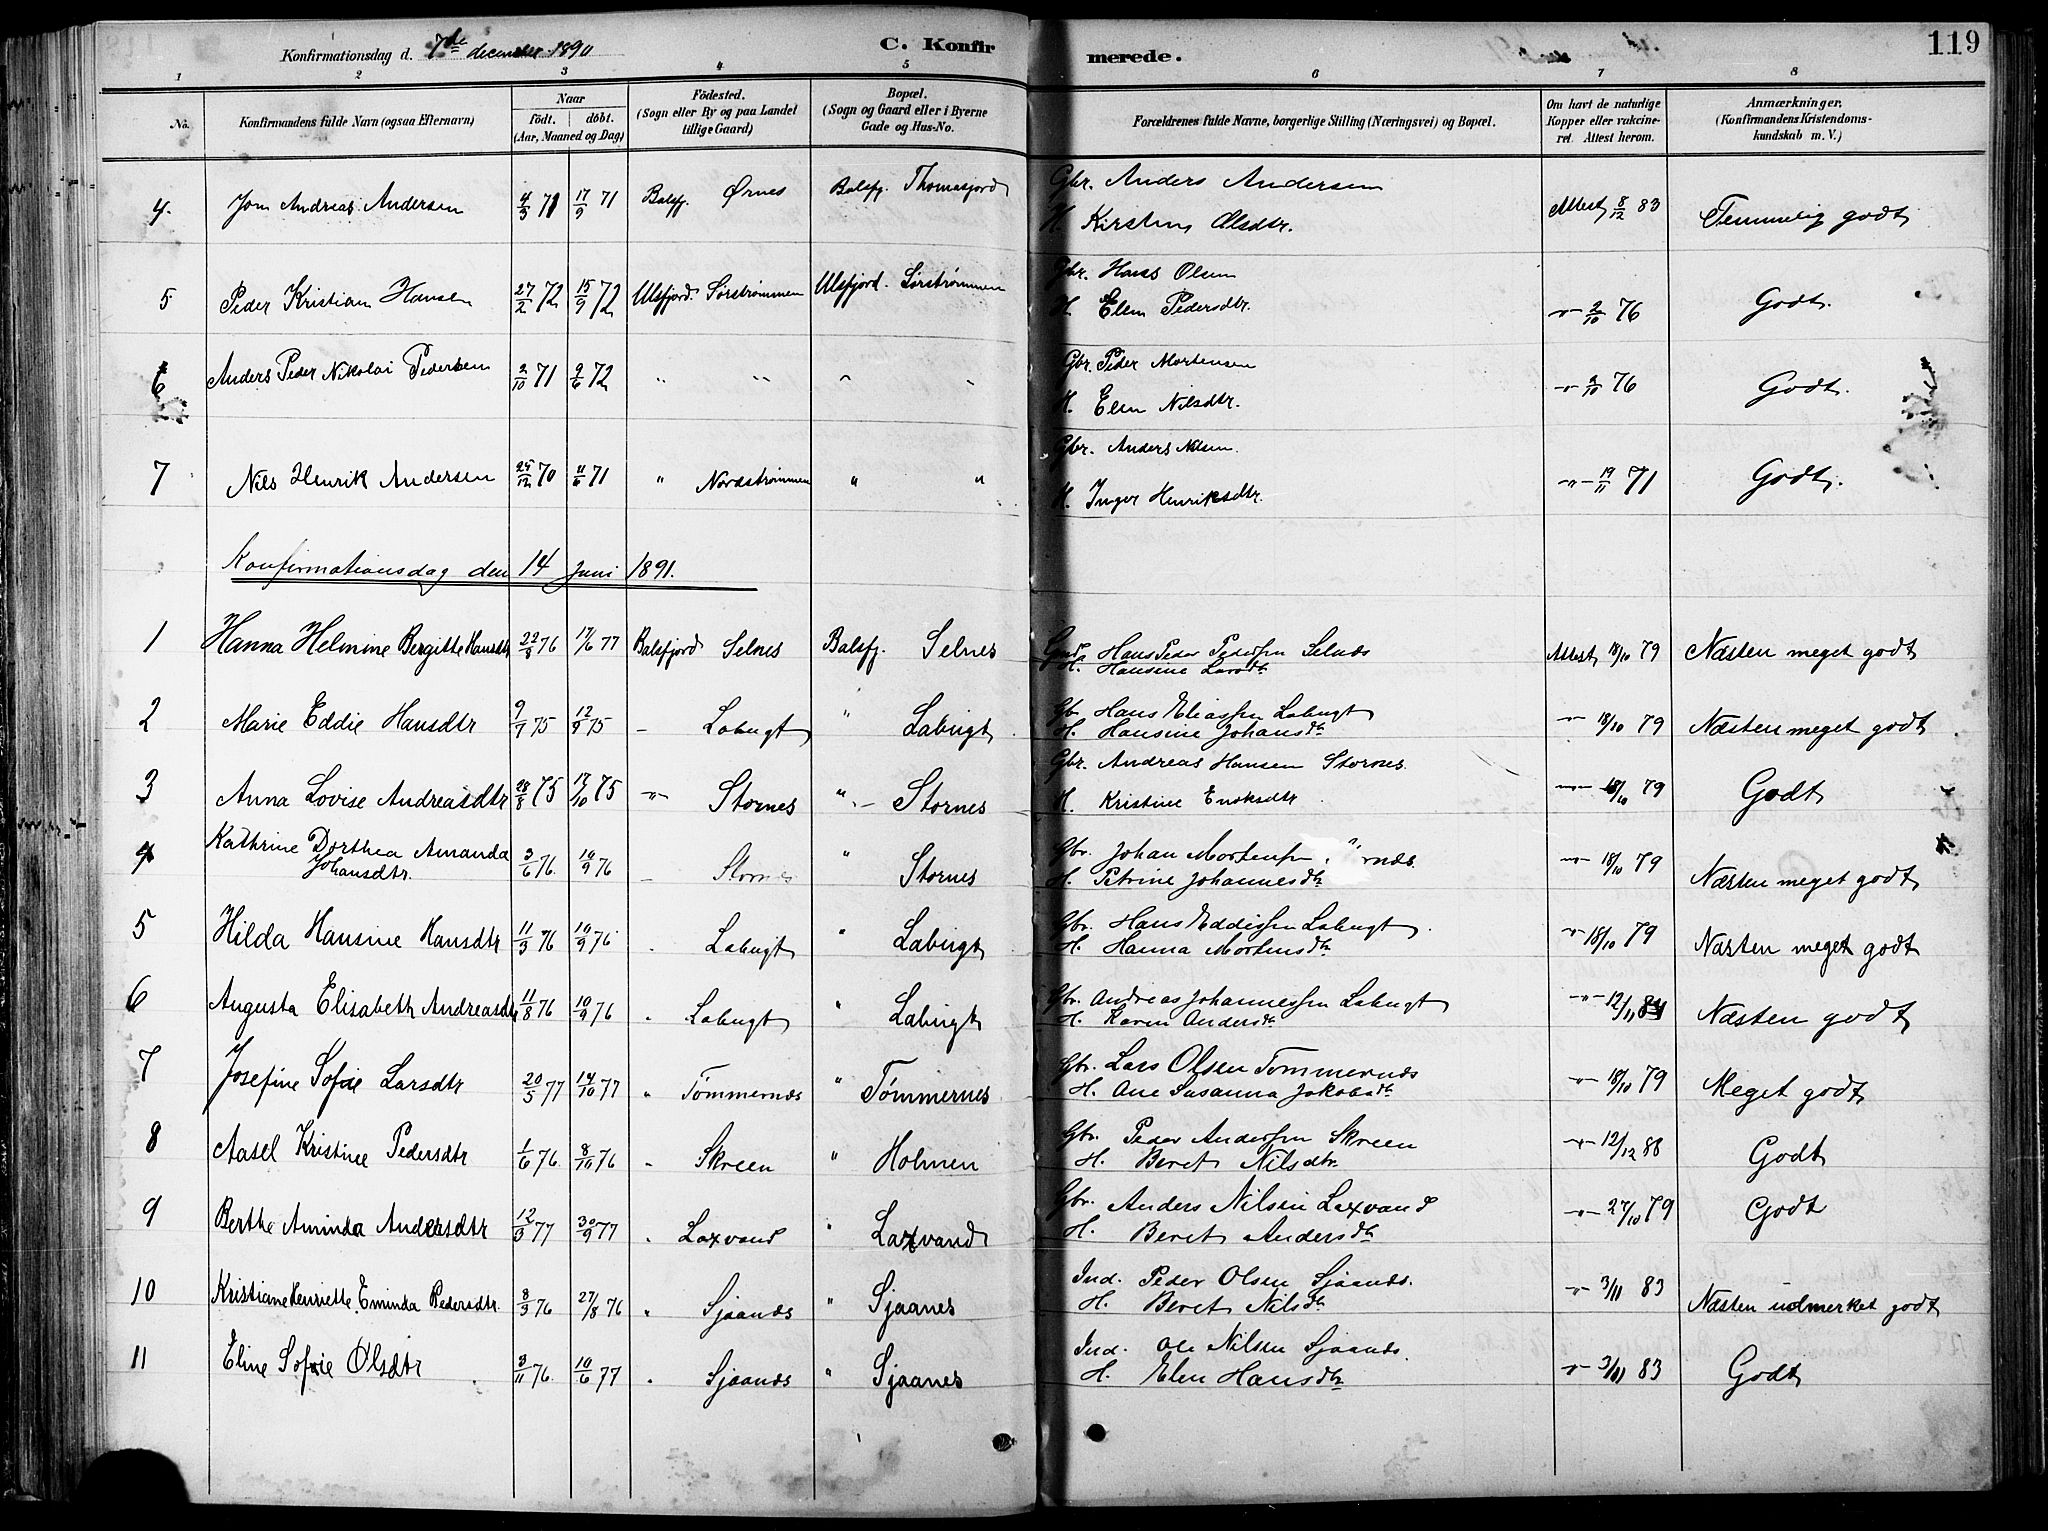 Konfirmationsdag d. 7de december 1890 C. Konfirmerede. 119
1 2 3 4 5 6 7 8
No. Konfirmandens fulde Navn (ogsaa Efternavn) Naar födt. döbt. (Aar, Maaned og Dag) Födested. (Sogn eller By og paa Landet tillige Gaard) Bopæl. (Sogn og Gaard eller i Byerne Gade og Hus-No. Forældrenes fulde Navne, borgerlige Stilling (Næringsvei) og Bopæl. Om havt de naturlige Kopper eller vaccineret. Attest herom. Anmærkninger. (Konfirmandens Kristendomskundskab m. V.)
4. Jom Andreas Andersen 4/3 71 17/9 71 Balsfj. Ørnes Balsfj. Thomasjord Gbr. Anders Andersen
H. Kirstine Olsdtr. Attest 8/12 83 Temmelig godt
5 Peder Kristian Hansen 27/2 72 15/9 72 Ulsfjord. Sörströmmen Ulsfjord. Sörströmmen Gbr. Hans Olsen
H. Elen Pedersdtr. -"- 2/10 76 Godt.
6 Anders Peder Nikolai Pedersen 2/10 71 9/6 72 " " " " Gbr. Peder Mortensen
H. Elen Nilsdtr. -"- 2/10 76 Godt.
7 Nils Henrik Andersen 25/12 70 11/6 71 " Nordströmmen " " Gbr. Anders Nilsen.
H. Inger Henriksdtr. -"- 19/11 71 Godt.
Konfirmationsdag den 14 Juni 1891.
1 Hanna Helmine Bergitte Hansdtr 22/8 76 17/6 77 Balsfjord Selnes Balsfj. Selnes Hans Peder Pedersen Selnæs
H. Hansine Larsdtr Attest 18/10 79 Næsten meget godt
2 Marie Eddie Hansdtr 9/7 75 12/9 75 - Labugt " Labugt Gbr Hans Eliassen Labugt
H. Hansine Johansdtr -"- 18/10 79 Næsten meget godt
3 Anna Lovise Andreasdtr 28/8 75 17/10 75 -"- Stornes " - Stornes Gbr. Andreas Hansen Stornes.
H. Kristine Enoksdtr -"- 18/10 79 Godt
4 Kathrine Dorthea Amanda
Johansdtr. 3/6 76. 10/9 76 - Stornes " Stornes Gbr. Johan Mortensen
H. Petrine Johannesdtr -"- 18/10 79 Næsten meget godt
5 Hilda Hansine Hansdtr 11/3 76 10/9 76 " Labugt " Labugt Gbr. Hans Eddissen Labugt
H. Hanna Mortensdtr -"- 18/10 79 Næsten meget godt
6 Augusta Elisabeth Andreasdtr 11/8 76 10/9 76 " Labugt " Labugt Gbr. Andreas Johannessen Labugt
H. Karen Andersdtr -"- 12/11 84 Næsten godt
7 Josefine Sofie Larsdtr 20/5 77 14/10 77 " Tömmernæs " Tömmernes Gbr. Lars Olsen Tömmernæs
H. Ane Susanna Jakobsdtr -"- 18/10 79 Meget godt
8 Aasel Kristine Pedersdtr 1/6 76. 8/10 76 " Skreen " Holmen Gbr. Peder Anderssen Skreen
H. Beret Nilsdtr. -"- 12/12 88 Godt
9 Berthe Aminda Andersdtr 12/3 77 30/9 77 " Laxvand " Laxvand Gbr. Anders Nilsen Laxvand
H. Beret Andersdtr -"- 27/10 79 Godt
10 Kristiane Henriette Eminda Pedersdtr. 8/3 76 27/8 76 " Sjaanæs " Sjaanes Ind. Peder Olsen Sjaanæs.
H. Beret Nilsdtr -"- 3/11 83 Næsten udmerket godt
11 Eline Sofie Olsdtr 3/11 76. 10/6 77 " Sjaanæs " Sjaanes Ind. Ole Nilsen Sjaanæs.
H. Elen Hansdtr -"- 3/11 83 Godt